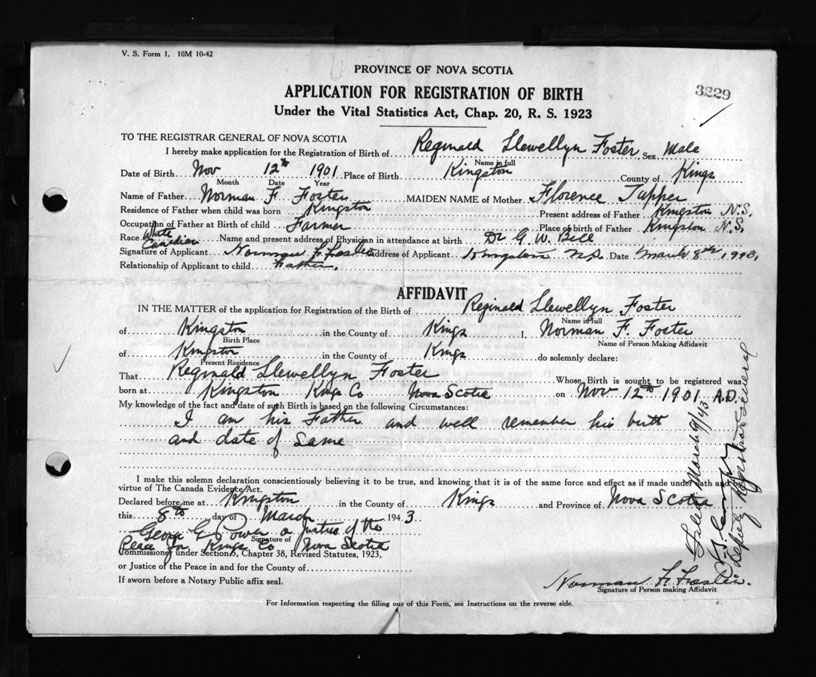 V. S. Form 1. 10M 10-42
PROVINCE OF NOVA SCOTIA
3229
APPLICATION FOR REGISTRATION OF BIRTH
Under the Vital Statistics Act, Chap. 20, R. S. 1923
TO THE REGISTRAR GENERAL OF NOVA SCOTIA
I hereby make application for the Registration of Birth of Reginald Llewellyn Foster Sex Male
Name in full
Date of Birth Nov 12th 1901 Place of Birth Kingston County of Kings
Month Date Year
Name of Father Norman F. Foster MAIDEN NAME of Mother Florence Tupper
Residence of Father when child was born Kingston Present address of Father Kingston N.S.
Occupation of Father at Birth of child Farmer Place of birth of Father Kingston N.S.
Race White Canadian Name and present address of Physician in attendance at birth Dr G. W. Bell
Signature of Applicant Norman F. Foster Address of Applicant Kingston N.S. Date March 8th 1943
Relationship of Applicant to child Father.
AFFIDAVIT
IN THE MATTER of the application for Registration of the Birth of Reginald Llewellyn Foster
Name in full
of Kingston in the County of Kings I, Norman F. Foster
Birth Place Name of Person Making Affidavit
of Kingston in the County of Kings do solemnly declare:
Present Residence
That Reginald Llewellyn Foster Whose Birth is sought to be registered was
born at Kingston Kings Co Nova Scotia on Nov 12th 1901 A.D.
My knowledge of the fact and date of such Birth is based on the following Circumstances:
I am his Father and well remember his birth
and date of same
I make this solemn declaration conscientiously believing it to be true, and knowing that it is of the same force and effect as if made under oath and
virtue of The Canada Evidence Act.
Declared before me at Kingston in the County of Kings and Province of Nova Scotia
this 8th day of March 1943.
George E. Power a Justice of the
Signature of
Peace for Kings Co Nova Scotia
Commissioned under Section 6, Chapter 38, Revised Statutes, 1923,
or Justice of the Peace in and for the County of
If sworn before a Notary Public affix seal.
Norman F. Foster.
Signature of Person making Affidavit
For Information respecting the filling out of this Form, see Instructions on the reverse side.
Filed March 9/43
Deputy Registrar General